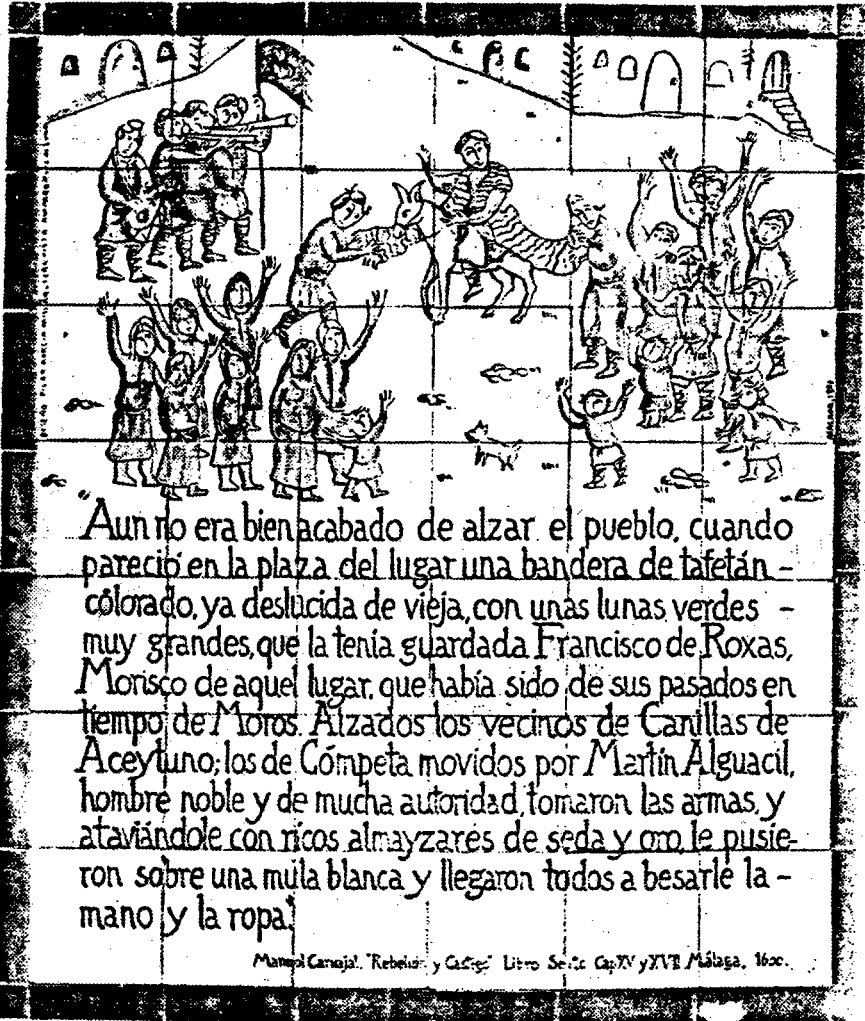 "Aun no era bien acabado de alzar el pueblo, cuando
pareció en la plaza del lugar una bandera de tafetán –
colorado, ya deslucida de vieja, con unas lunas verdes –
muy grandes, que la tenia guardada Francisco de Roxas,
Morisco de aquel lugar, que había sido de sus pasados en
tiempo de Moros. Alzados los vecinos de Canillas de
Aceytuno; los de Cómpeta movidos por Martín Alguacil,
hombre noble y de mucha autoridad, tomaron las armas, y
ataviándole con ricos almayzares de seda y oro, le pusie-
ron sobre una mula blanca y llegaron todos a besarle la –
mano y la ropa."
"Rebelion y Castigo" Libro Cap XV y XVII Málaga, 1600.